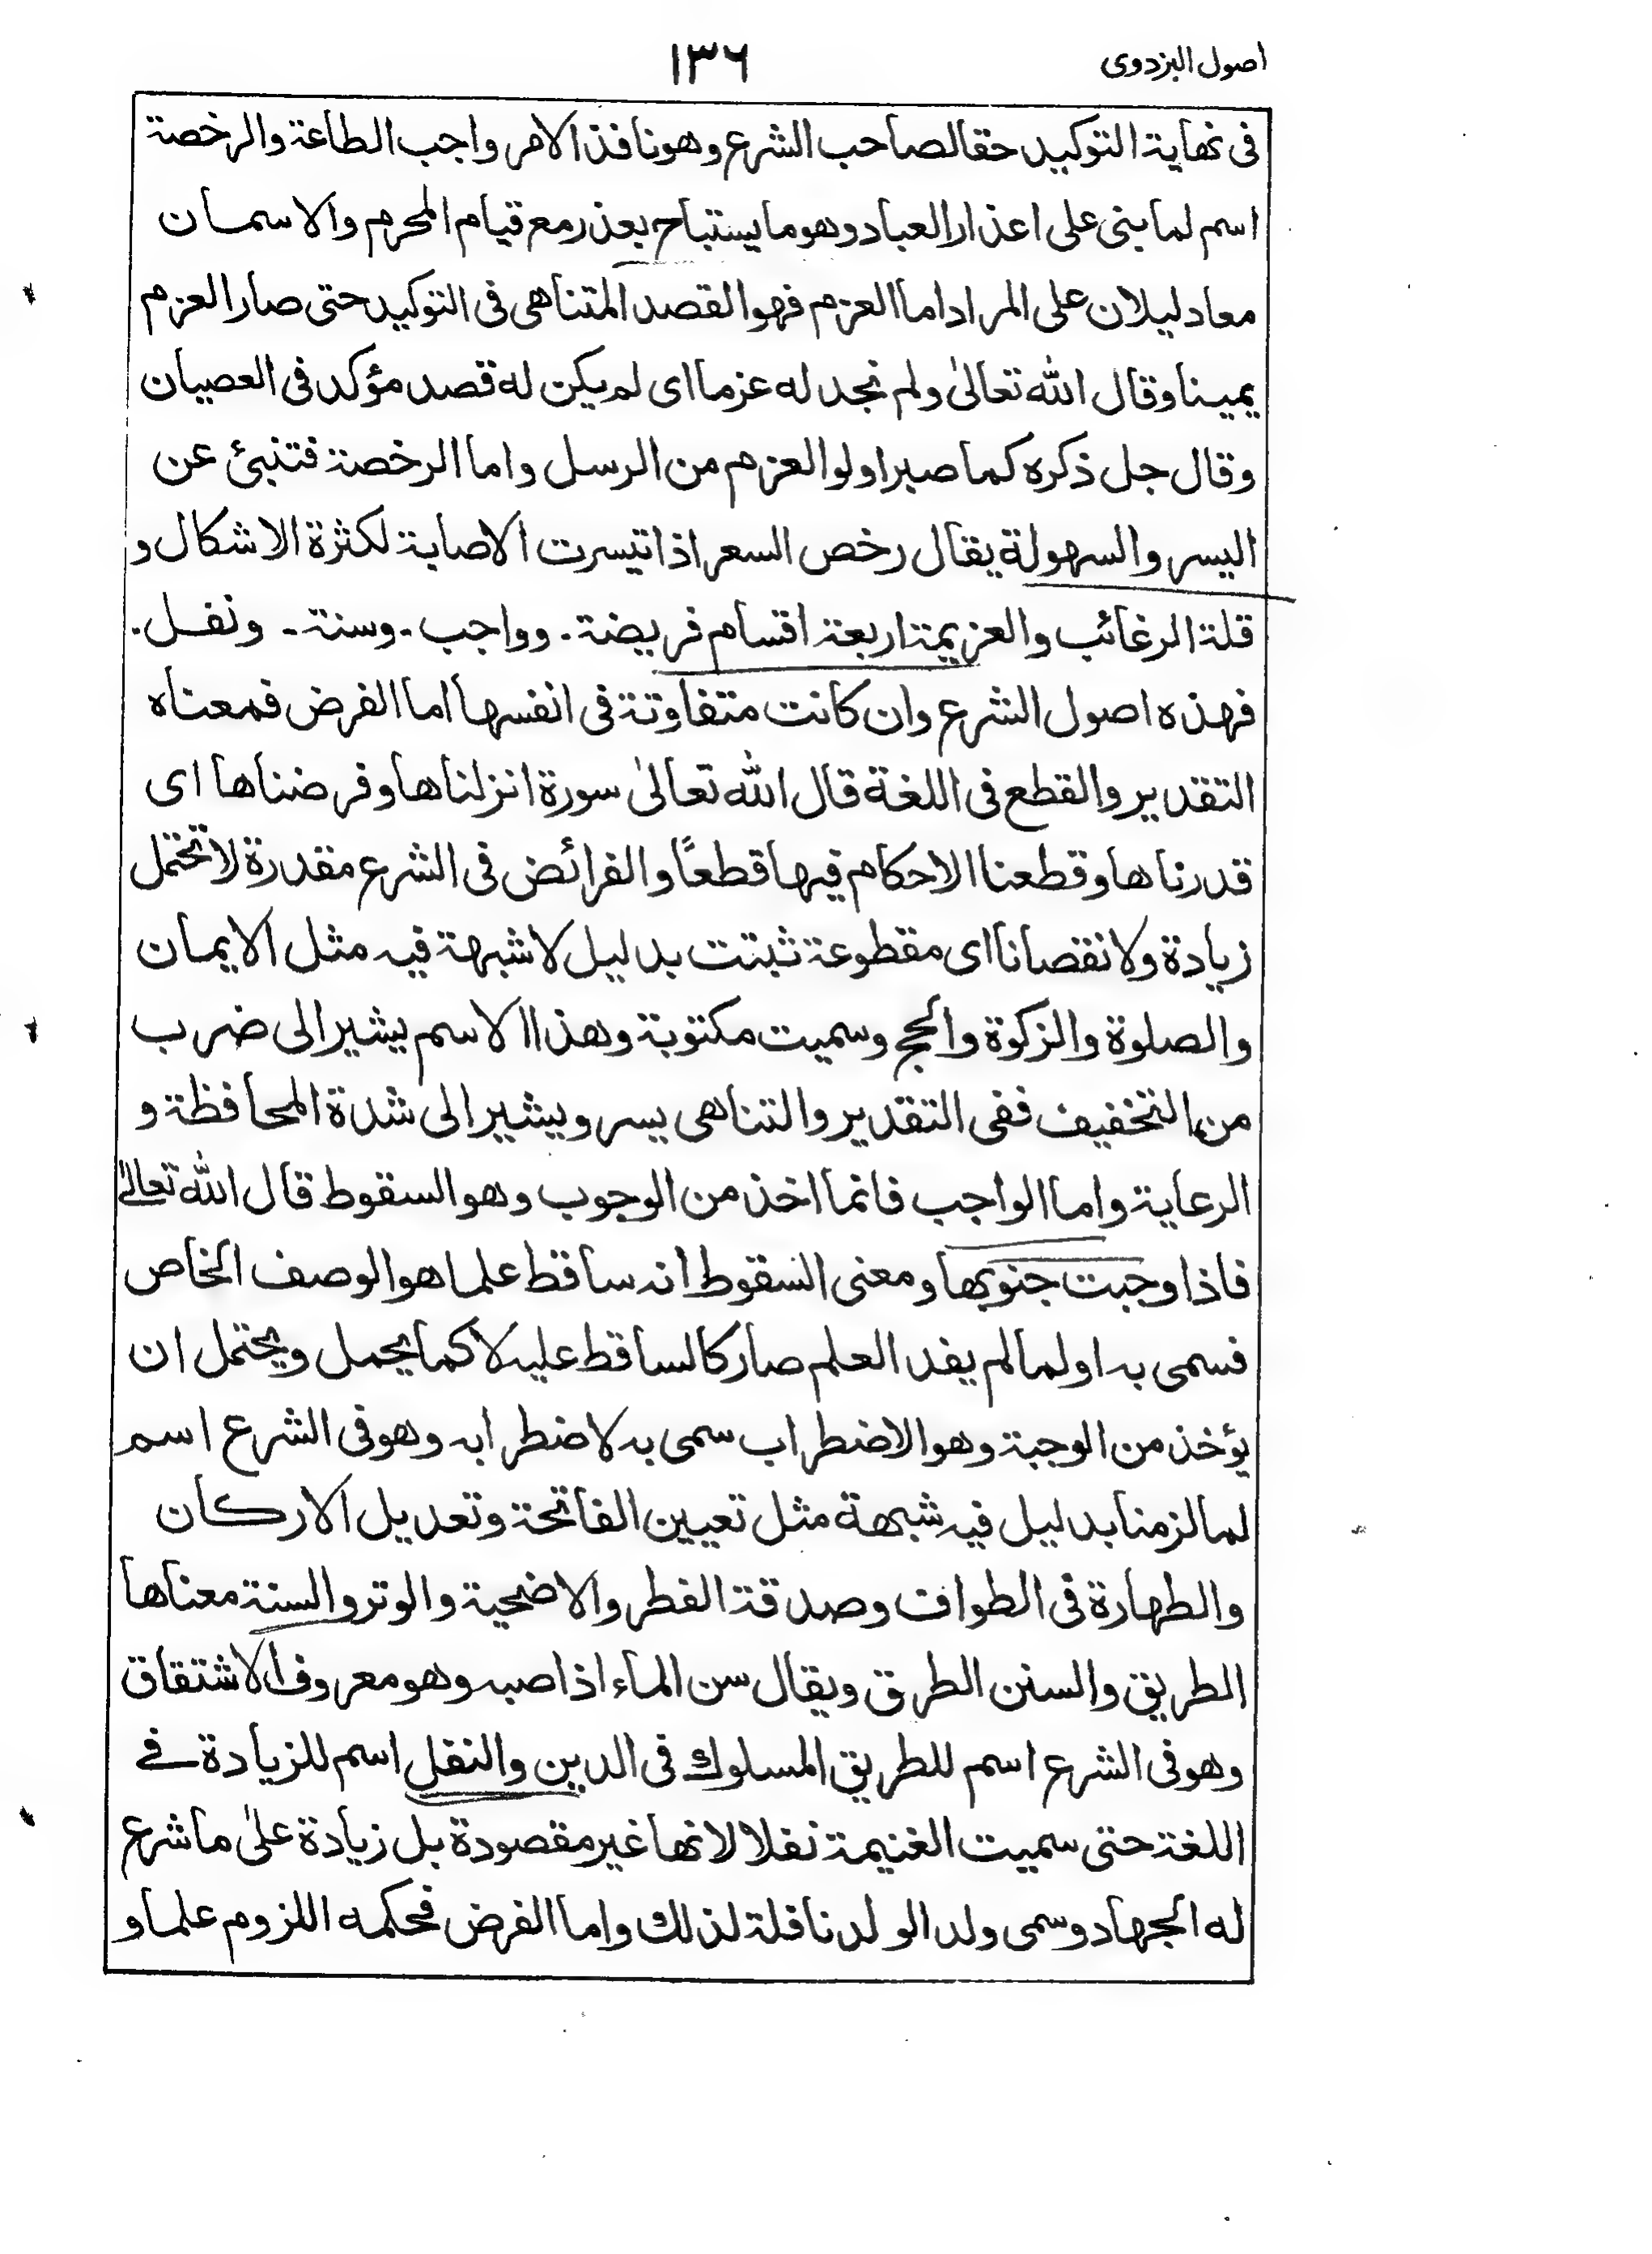 اصول البزدوی
١٣٦
فی نهایة التوکید حقا لصاحب الشرع وهو نافذ الامر واجب الطاعة والرخصة
اسم لما بنی علی اعذار العباد وهو ما یستباح بعذر مع قیام المحرم والاسمان
معا دلیلان علی المراد اما العزم فهو القصد المتناهی فی التوکید حتی صار العزم
یمینا وقال الله تعالیٰ ولم نجد له عزما ای لم یکن له قصد مؤکد فی العصیان
وقال جل ذکره کما صبر اولوا العزم من الرسل واما الرخصة فتنبئ عن
الیسر والسهولة یقال رخص السعر اذا تیسرت الاصابة لکثرة الاشکال و
قلة الرغائب والعزیمة اربعة اقسام فریضة ۔ وواجب ۔ وسنة ۔ ونفل ۔
فهذه اصول الشرع وان کانت متفاوتة فی انفسها اما الفرض فمعناه
التقدیر والقطع فی اللغة قال الله تعالیٰ سورة انزلناها وفرضناها ای
قدرناها وقطعنا الاحکام فیها قطعًا والفرائض فی الشرع مقدرة لا تحتمل
زیادة ولا نقصانا ای مقطوعة ثبتت بدلیل لا شبهة فیه مثل الایمان
والصلوة والزکوة والحج وسمیت مکتوبة وهذا الاسم یشیر الی ضرب
من التخفیف ففی التقدیر والتناهی یسر ویشیر الی شدة المحافظة و
الرعایة واما الواجب فانما اخذ من الوجوب وهو السقوط قال الله تعالیٰ
فاذا وجبت جنوبها ومعنی السقوط انه ساقط علما هو الوصف الخاص
فسمی به او لما لم یفد العلم صار کالساقط علیه لا کما یحمل ویحتمل ان
یؤخذ من الوجبة وهو الاضطراب سمی به لاضطرابه وهو فی الشرع اسم
لما لزمنا بدلیل فیه شبهة مثل تعیین الفاتحة وتعدیل الارکان
والطهارة فی الطواف وصدقة الفطر والاضحیة والوتر والسنة معناها
الطریق والسنن الطرق ویقال سن الماء اذا صبه وهو معروف الاشتقاق
وهو فی الشرع اسم للطریق المسلوك فی الدین والنفل اسم للزیادة فے
اللغة حتی سمیت الغنیمة نفلا لانها غیر مقصودة بل زیادة علیٰ ما شرع
له الجهاد وسمی ولد الولد نافلة لذلك واما الفرض فحکمه اللزوم علما و